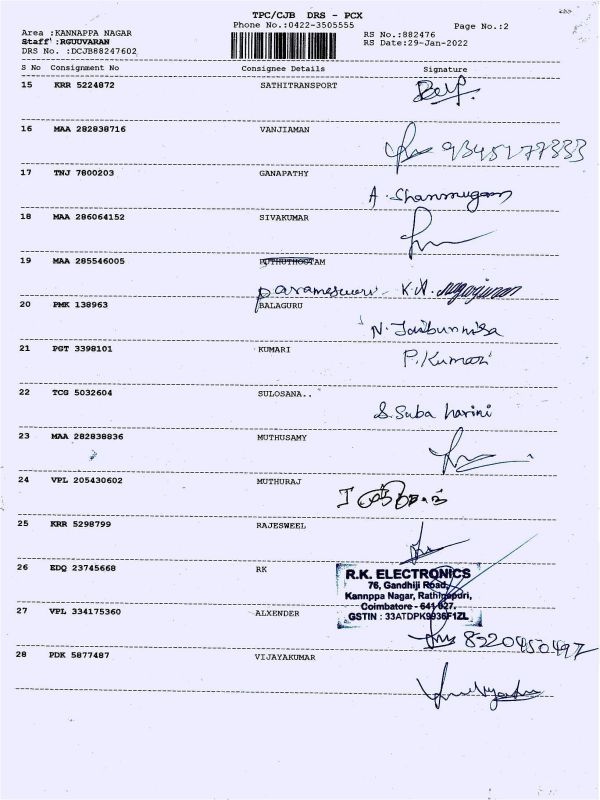 TPC/CJB DRS - PCX
Phone No.:0422-3505555
Page No.:2
Area :KANNAPPA NAGAR
Staff :RGUUVARAN
DRS No. :DCJB88247602
RS No.:882476
RS Date:29-Jan-2022
S No Consignment No Consignee Details Signature
15 KRR 5224872 SATHITRANSPORT
16 MAA 282838716 VANJIAMAN
9345177333
17 TNJ 7800203 GANAPATHY
A. Shanmugam
18 MAA 286064152 SIVAKUMAR
19 MAA 285546005 PUTHUTHOTTAM
Parameswari - K.A.
20 PMK 138963 BALAGURU
N. Jaibunnisa
21 PGT 3398101 KUMARI
P. Kumari
22 TCG 5032604 SULOSANA..
S. Suba harini
23 MAA 282838836 MUTHUSAMY
24 VPL 205430602 MUTHURAJ
25 KRR 5298799 RAJESWEEL
26 EDQ 23745668 RK
R.K. ELECTRONICS
76, Gandhiji Road,
Kannppa Nagar, Rathinapuri,
Coimbatore - 641 027.
GSTIN : 33ATDPK9936F1ZL
27 VPL 334175360 ALXENDER
8220450497
28 PDK 5877487 VIJAYAKUMAR